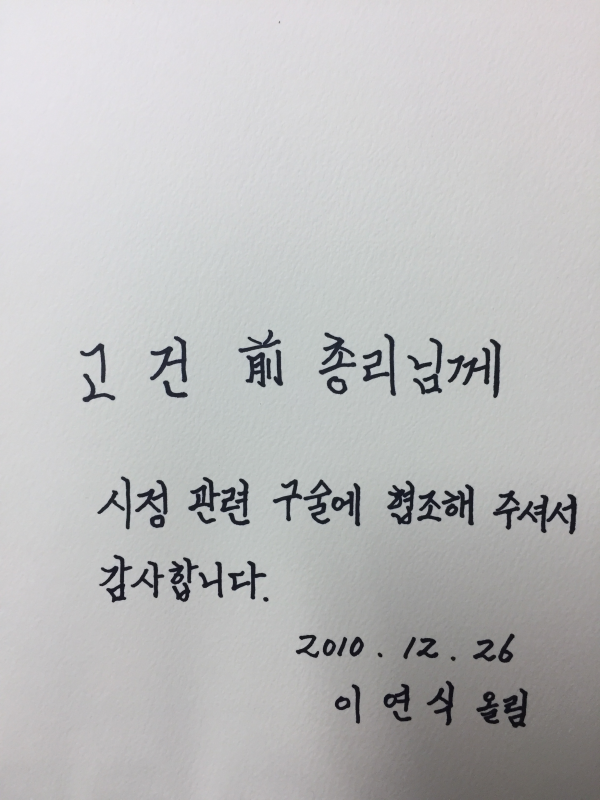 고 건 前 총리님께
시정 관련 구술에 협조해 주셔서
감사합니다.
2010. 12. 26
이 연 식 올림